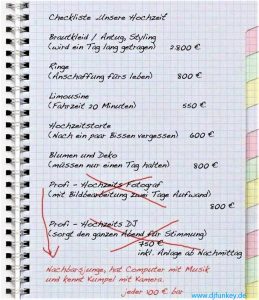 Checkliste „Unsere Hochzeit
Brautkleid / Anzug, Styling
(wird ein Tag lang getragen) 2.800 €
Ringe
(Anschaffung fürs leben) 800 €
Limousine
(Fahrzeit 20 Minuten) 550 €
Hochzeitstorte
(Nach ein paar Bissen vergessen) 600 €
Blumen und Deko
(müssen nur einen Tag halten) 800 €
Profi - Hochzeits Fotograf
(mit Bildbearbeitung zwei Tage Aufwand)
800 €
Profi - Hochzeits DJ
(sorgt den ganzen Abend für Stimmung)
450 €
inkl. Anlage ab Nachmittag
Nachbarsjunge, hat Computer mit Musik
und kennt Kumpel mit Kamera.
jeder 100 € bar
www.djfunkey.de